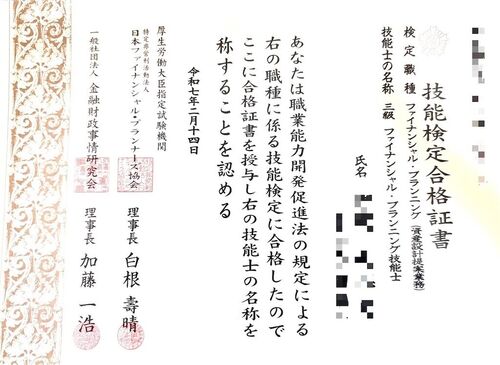 技能検定合格証書
検定職種 ファイナンシャル・プランニング(資産設計提案業務)
技能士の名称 三級 ファイナンシャル・プランニング技能士
氏名
あなたは職業能力開発促進法の規定による
右の職種に係る技能検定に合格したので
ここに合格証書を授与し右の技能士の名称を
称することを認める
令和七年二月十四日
厚生労働大臣指定試験機関
特定非営利活動法人
日本ファイナンシャル・プランナーズ協会
理事長 白根壽晴
一般社団法人 金融財政事情研究会
理事長 加藤一浩